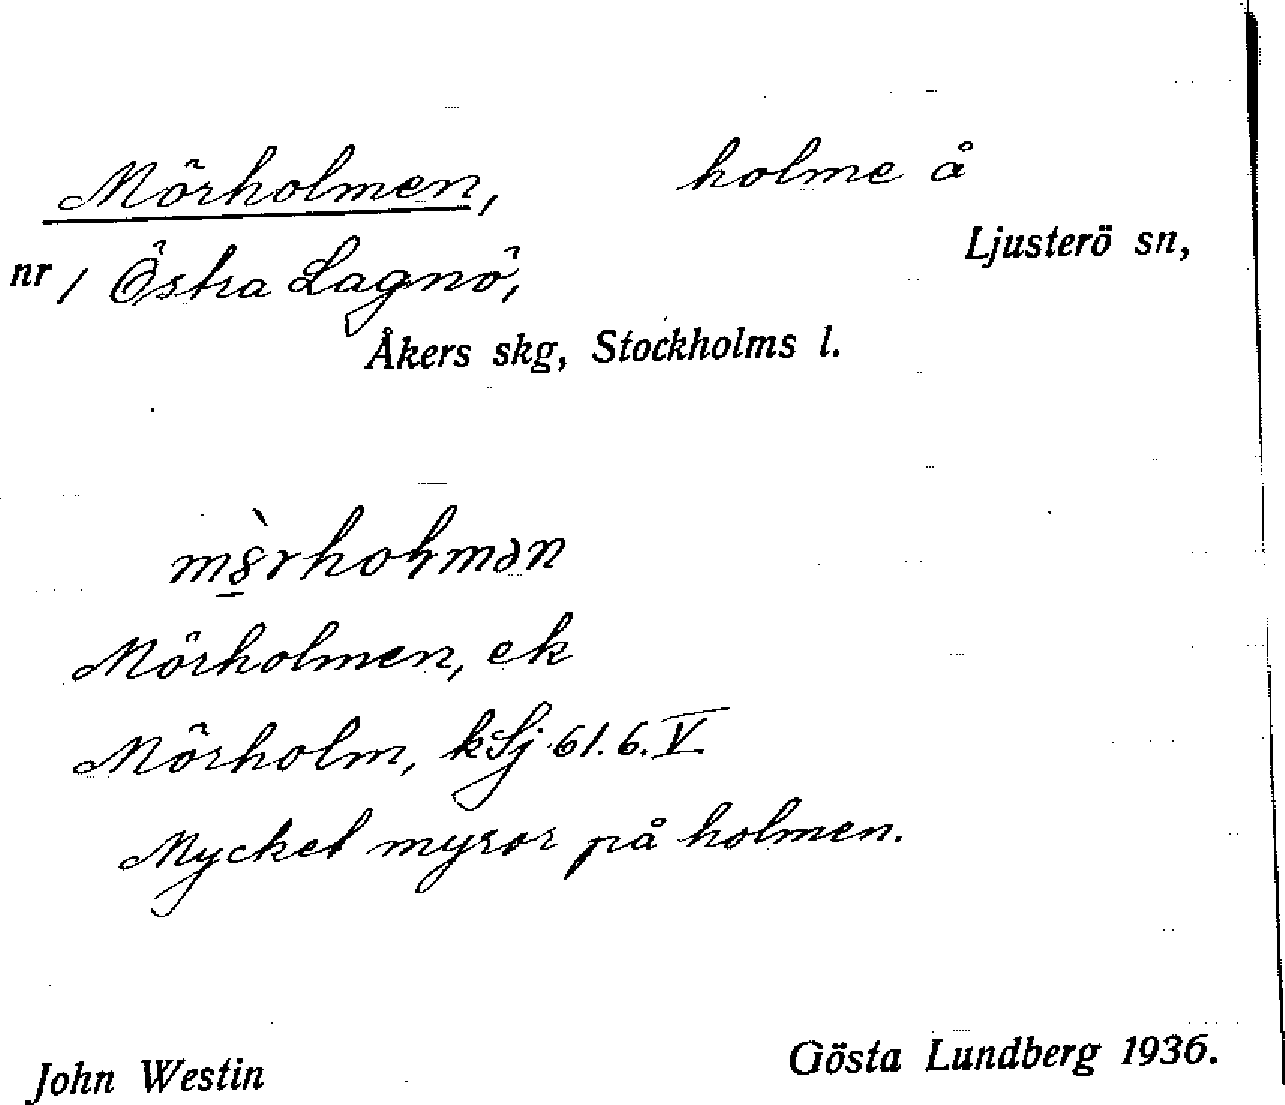 Mörholmen, holme å
nr 1 Östra Lagnö, Ljusterö sn,
Åkers skg, Stockholms l.
Mörholmen, ek
Mörholm, kSj 61.6.V.
Mycket myror på holmen.
John Westin Gösta Lundberg 1936.